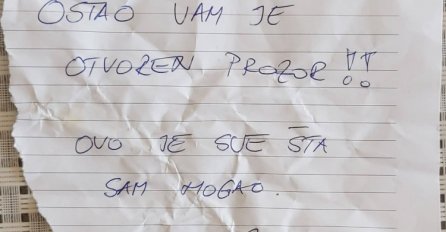 OSTAO VAM JE
OTVOREN PROZOR!!
OVO JE SVE ŠTA
SAM MOGAO.